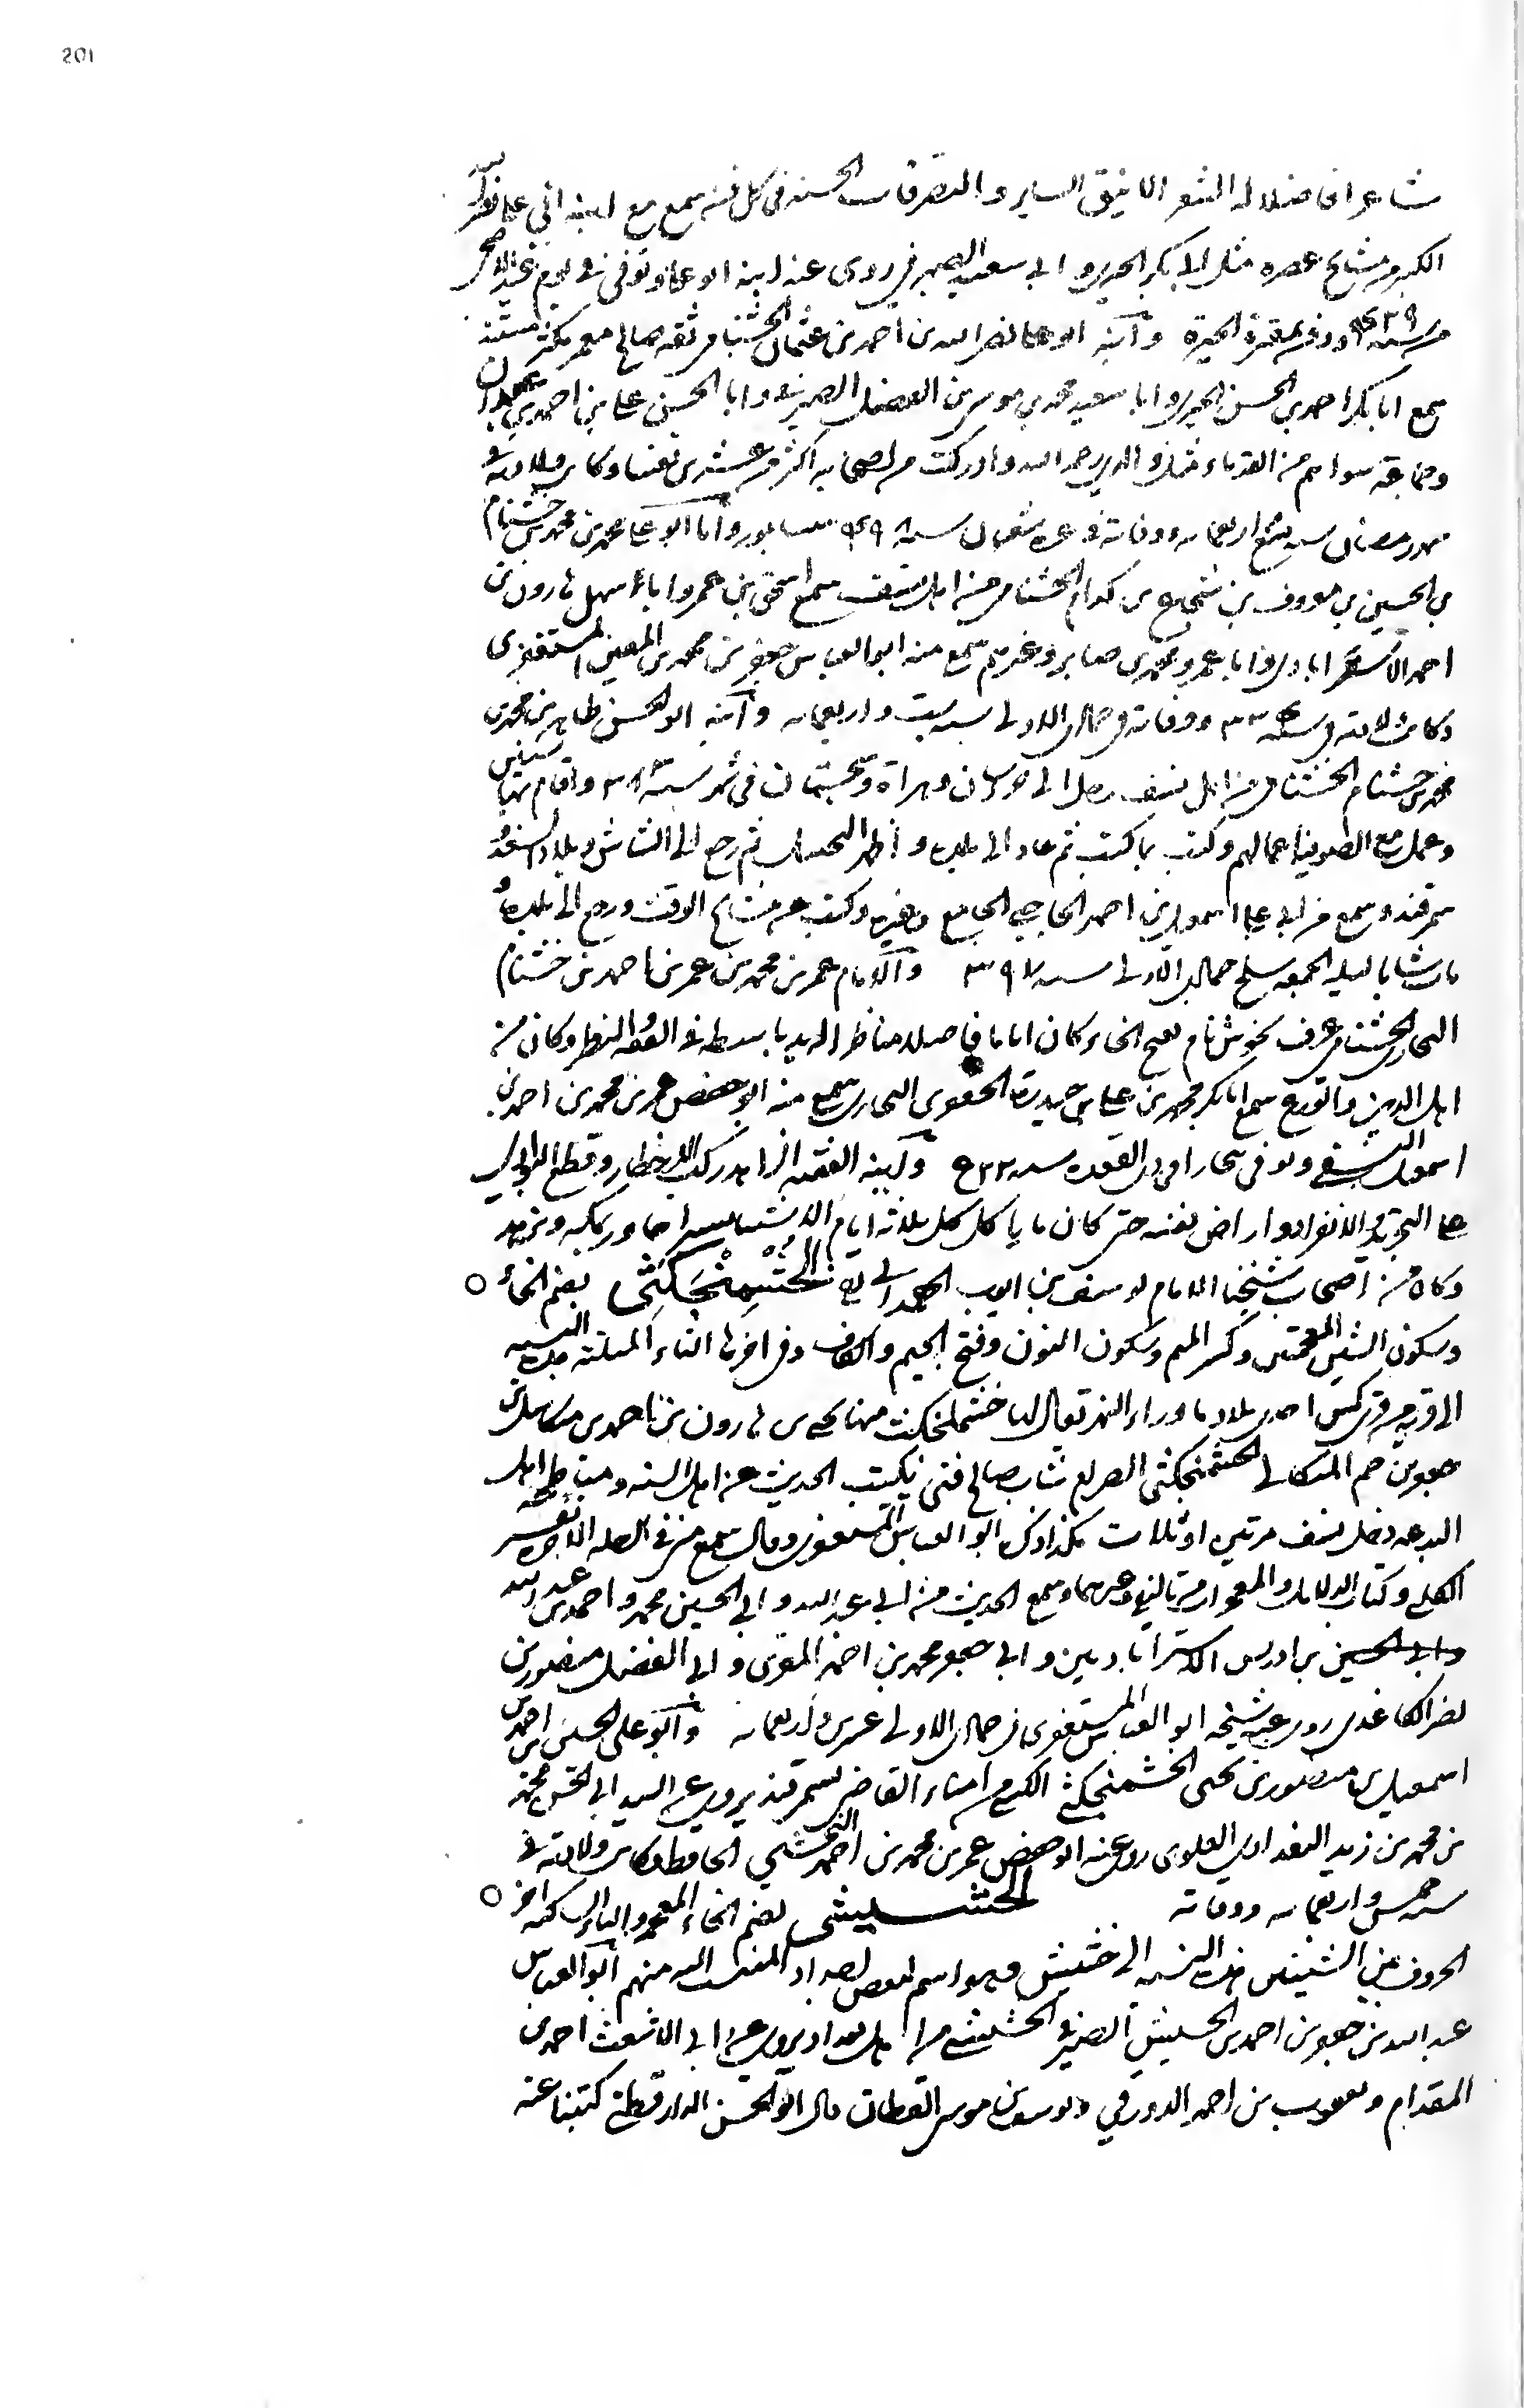 201
شاعرا فاضلا له الشعر الانيق الساير والتصرفات الحسنة في كل فن سمع مع ابنه ابي علي نصر الله
الكثير من مشايخ عصره مثل ابي بكر الحيري وابي سعيد الصيرفي روى عنه ابنه ابو علي وتوفي في يوم عيد الاضحى
من سنة ودفن بمقبرة الحيرة وابنه ابو علي نصر الله بن احمد بن عثمان الخشنامي ثقة صالح معمر مكثر مسند
سمع ابا بكر احمد بن الحسن الحيري وابا سعيد محمد بن موسى بن الفضل الصيرفي وابا الحسن علي بن احمد بن عبدان
وجماعة سواهم من القدماء مثل والدي رحمه الله وادركت من اصحابه اكثر من عشرين نفسا وكانت ولادته في
رمضان سنة تسع واربعمايه ووفاته في غرة شعبان سنة بنيسابور وابو علي محمد بن محمد بن خشنام
بن الحسين بن معروف بن شجاع بن كدام الخشنامي من اهل نسف سمع اسحق بن عمرو ابا سهل هارون بن
احمد الاستراباذي وابا عمرو محمد بن صابر وغيرهم سمع منه ابو العباس جعفر بن محمد بن المعتز المستغفري
وكانت ولادته في سنة ووفاته في جمادى الاولى سنة ست واربعمايه وابنه ابو الحسن طاهر بن محمد بن
محمد بن خشنام الخشنامي من اهل نسف رحل الى وهراة وسجستان في شهر سنة واقام بها سنين
وعمل مع الصوفية اعمالهم وكتب ما كتب ثم عاد الى بلده و ثم رجع الى الشاش وبلاد السغد
سمرقند وسمع من ابي علي اسمعيل بن احمد الحاجبي الجامع وغيره وكتب عن مشايخ الوقت ورجع الى بلده
مات شابا ليلة الجمعة سلخ جمادى الاولى سنة ٣٩٧ والامام عمر بن محمد بن عمر بن احمد بن خشنام
البخاري الخشنامي عرف بخوش نام بفتح الخاء وكان اماما فاضلا مناظرا له يد باسطة في الفقه والنظر وكان من
اهل الدين والورع سمع ابا بكر محمد بن علي بن حيدرة الجعفري البخاري سمع منه ابو حفص عمر بن محمد بن احمد بن
اسمعيل النسفي وتوفي ببخارا في ذي القعدة سنة وابنه الفقيه الزاهد ركب الاخطار وقطع البوادي
على التجريد والانفراد وراض نفسه حتى كان ما ياكل كل ثلاثة ايام الا شيا يسيرا جاور بمكة وتزهد
وكان من اصحاب شيخنا الامام يوسف بن ايوب الهمداني الخشمنجكثي بضم الخاء ○
وسكون الشين المعجمتين وكسر الميم وسكون النون وفتح الجيم والكاف وفي اخرها الثاء المثلثة هذه النسبة
الى قرية من قرى كس احدى بلاد ما وراء النهر يقال لها خشمنجكث منها يحيى بن هارون بن احمد بن ميكائيل بن
جعفر بن حم الميكالي الخشمنجكثي الصرام شاب صالح فتى يكتب الحديث عن اهل السنة ومناظر اهل
البدعة دخل نسف مرتين او ثلاث هكذا ذكره ابو العباس المستغفري وقال سمع مني في الرحلة الاخيرة تفسير
الكلبي وكتاب الدلايل والمعجزات من تاليفي وغيرهما وسمع الحديث من ابي عبد الله وابي الحسين محمد واحمد بن عبد الله
وابي الحسين بن ادريس الاستراباديين وابي جعفر محمد بن احمد المقري وابي الفضل منصور بن
نصر الكاغدي روى عنه شيخه ابو العباس المستغفري في جمادى الاولى عشرين واربعمايه وابو علي الحسن بن احمد بن
اسمعيل بن منصور بن يحيى الخشمنجكثي الكسي من امناء القاضي بسمرقند يروي عن السيد ابي الحسن محمد
بن محمد بن زيد البغدادي العلوي روى عنه ابو حفص عمر بن محمد بن احمد النسفي الحافظ وكانت ولادته في
سنة خمس واربعمايه ووفاته الخشيشي بضم الخاء المعجمة والياء الساكنة اخر ○
الحروف بين الشينين هذه النسبة الى خشيش وهو اسم لبعض اجداد المنتسب اليه منهم ابو العباس
عبد الله بن جعفر بن احمد بن الخشيش الصيرفي الخشيشي من اهل بغداد يروي عن ابي الاشعث احمد بن
المقدام ويعقوب بن احمد الدورقي ويوسف بن موسى القطان قال ابو الحسن الدارقطني كتبنا عنه